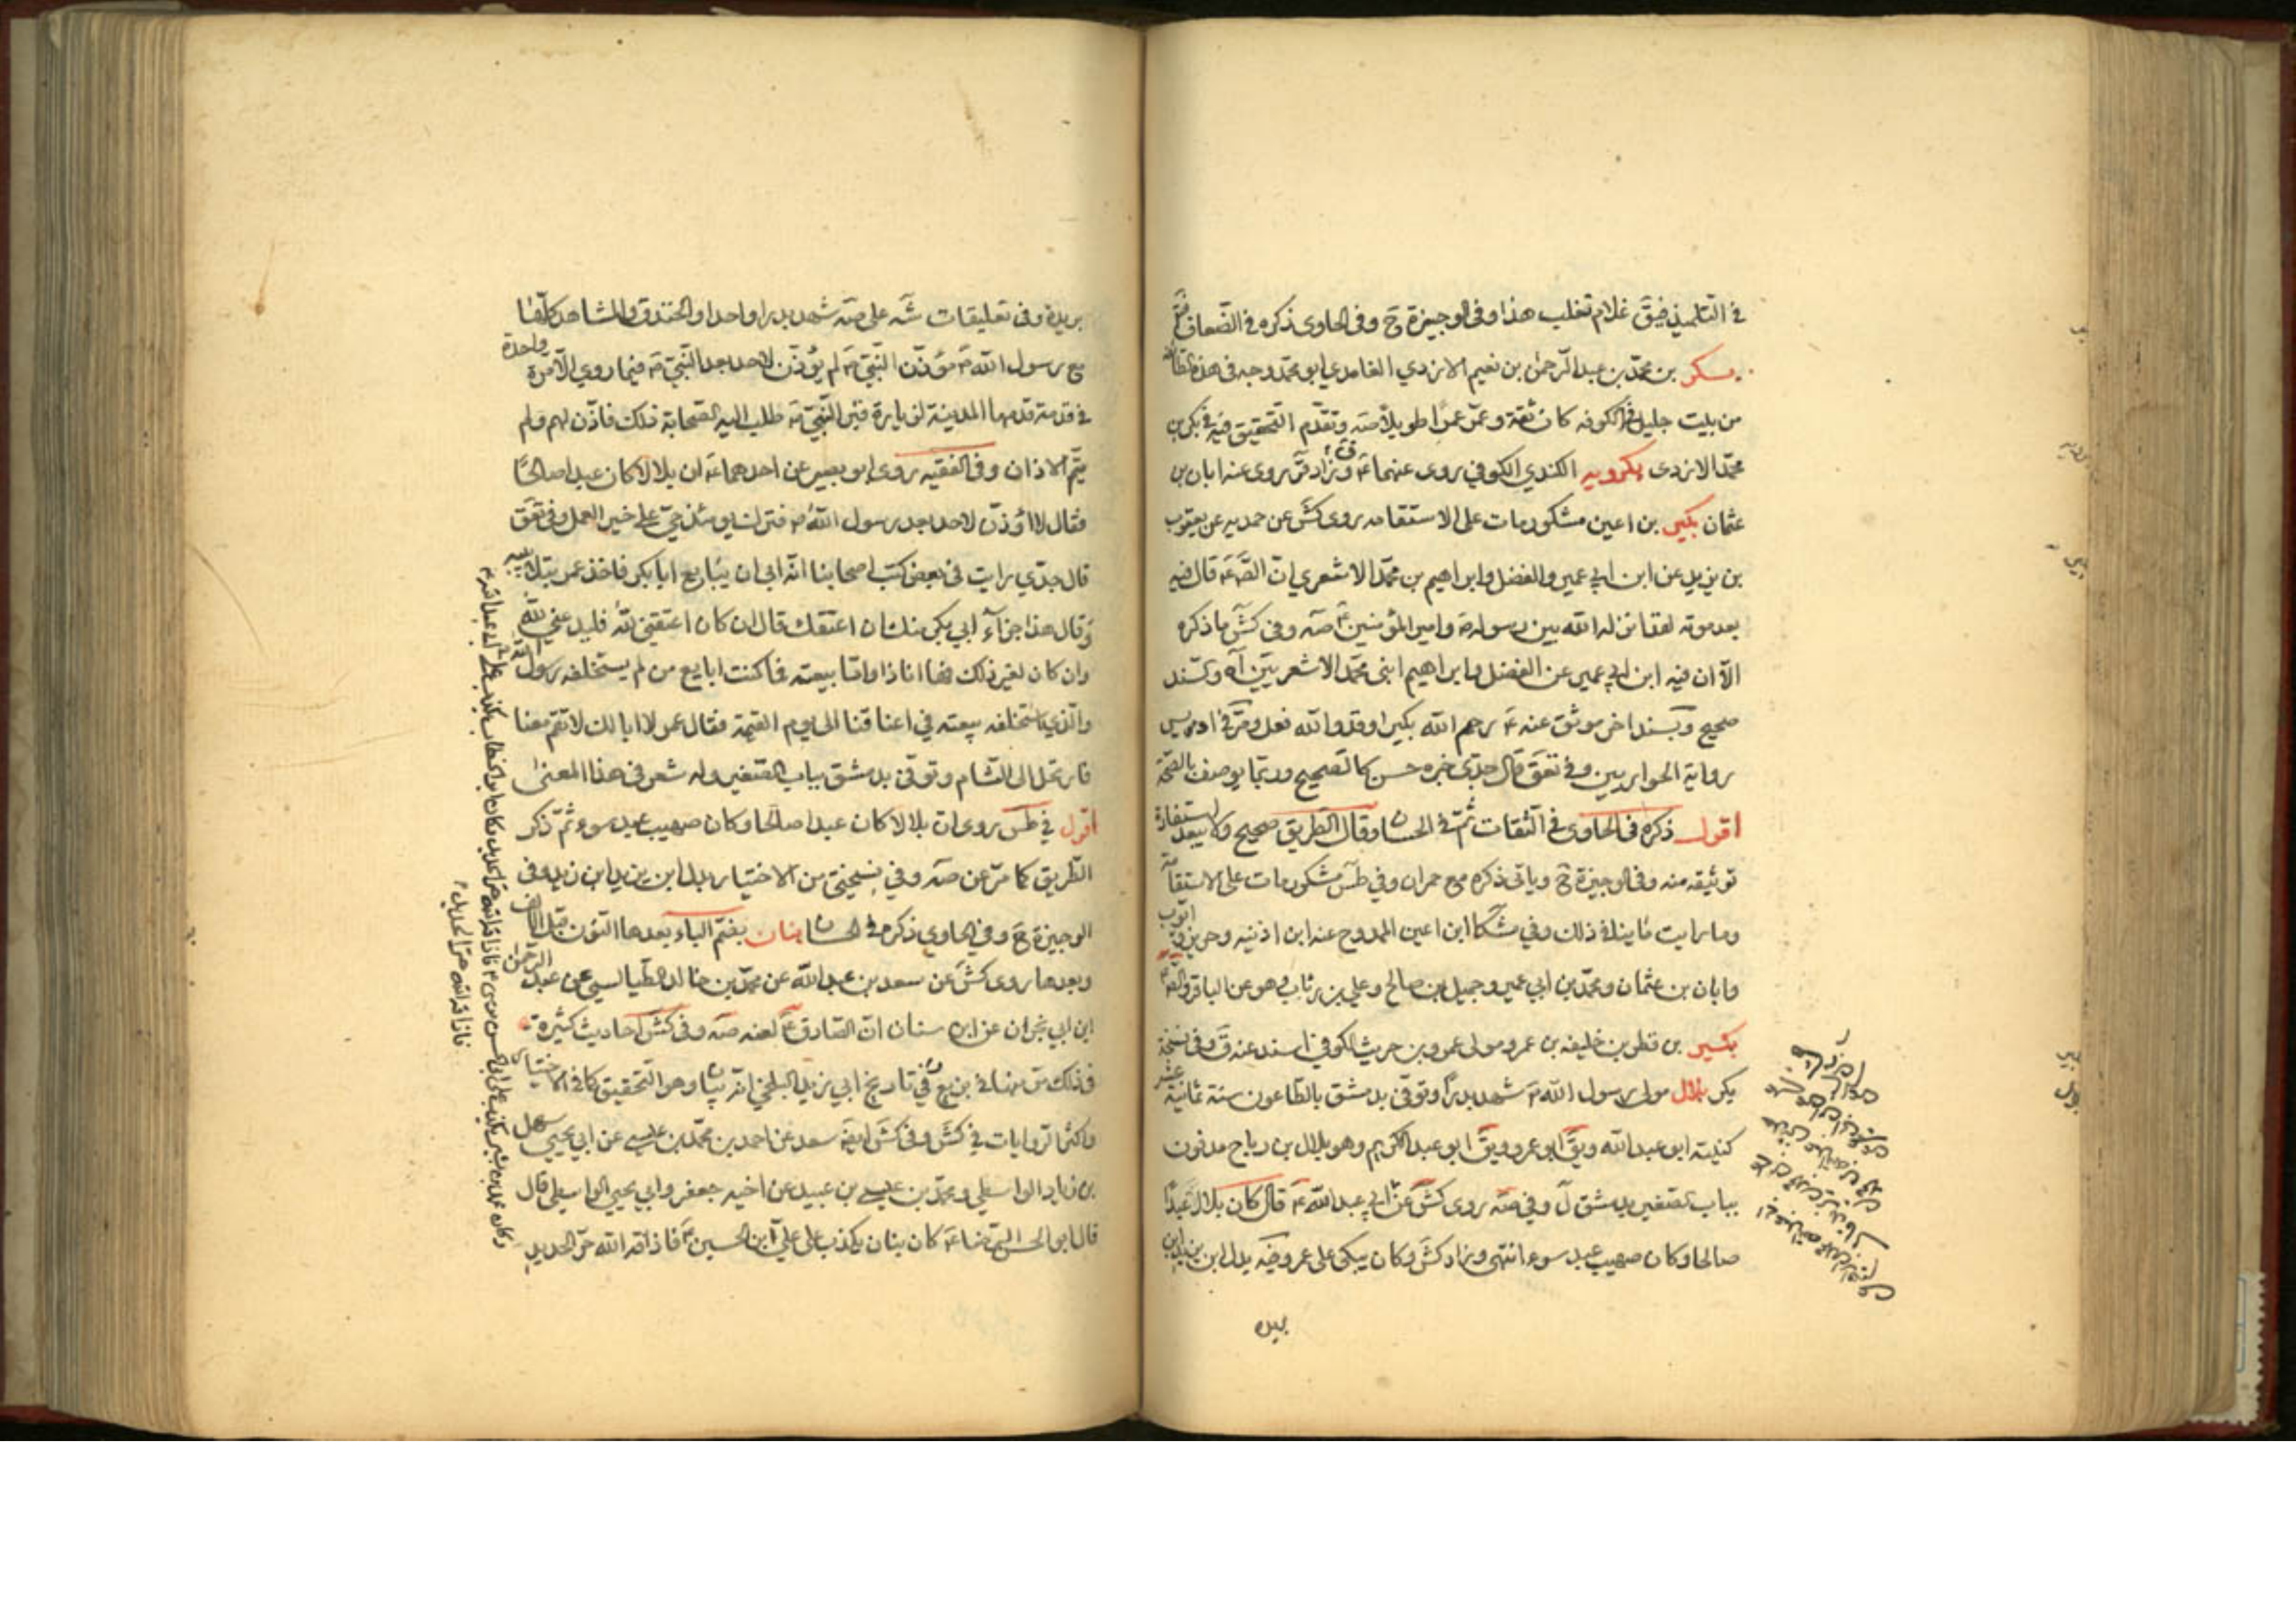 في التلميذ فيق غلام تغلب هذا وفى الوجيزة ح وفى الحاوى ذكره في الضعاف
بكر بن محمد بن عبد الرحمن بن نعيم الازدي الغامدي ابو محمد وجه فى هذه الطائفة
من بيت جليل في الكوفه كان ثقة وعمّر عمرا طويلا صه وتقدم التحقيق فيه في بكر بن
محمد الازدى بكرويه الكندي الكوفي روى عنهما ع وزاد ق روى عنه ابان بن
عثمان بكير بن اعين مشكور مات على الاستقامه روى كش عن حمديه عن يعقوب
بن يزيد عن ابن ابي عمير والفضل وابراهيم بن محمد الاشعري ان الص ع قال فيه
بعد موته لقد انزله الله بين رسوله ص وامير المؤمنين ع صه وفى كش ما ذكره
الا ان فيه ابن ابي عمير عن الفضل وابراهيم ابنى محمد الاشعريين اه وسند
صحيح وبسند اخر موثق عنه ع رحم الله بكيرا وقد والله فعل ومر في ادريس
رواية الحواريين وفي تعق قال جدي خبره حسن كالصحيح وربما يوصف بالصحة
اقول ذكره فى الحاوى في الثقات ثم في الحسان وقال الطريق صحيح ولا يبعد استفادة
توثيقه منه وفى الوجيزة ح وياتى ذكره مع حمران وفي طس مشكور مات على الاستقامة
وما رايت ما ينافي ذلك وفي مشكا ابن اعين الممدوح عنه ابن اذينه وحريز
وابان بن عثمان ومحمد بن ابي عمير وجميل بن صالح وعلي بن رئاب وهو عن الباقر والص ع
بكير بن قطر بن خليفه بن عمرو مولى عمرو بن حريث الكوفي اسند عنه ق وفى نسخة
بكر بلال مولى رسول الله ص شهد بدرا وتوفى بدمشق بالطاعون سنة ثمانية عشر
كنيته ابو عبد الله ويق ابو عمرو ويق ابو عبد الكريم وهو بلال بن رباح مدفون
بباب الصغير بدمشق ل وفي صه روى كش عن ابي عبد الله ع قال كان بلال عبدا
صالحا وكان صهيب عبد سوء انتهى وزاد كش وكان يبكى على عمر وفيه بدل ابن يزيد ابن
بريد
بريد وفى تعليقات شه على صه شهد بدرا واحدا والخندق والمشاهد كلها
مع رسول الله ص مؤذن النبي ص لم يؤذن لاحد بعد النبي ص فيما روي الا مرة واحدة
في قدمة قدمها المدينة لزيارة قبر النبي ص طلب اليه الصحابة ذلك فاذن لهم ولم
يتم الاذان وفى الفقيه روى ابو بصير عن احدهما ع ان بلالا كان عبدا صالحا
فقال لا اؤذن لاحد بعد رسول الله ص فترك يومئذ حي على خير العمل وفى تعق
قال جدي رايت فى بعض كتب اصحابنا انه ابى ان يبايع ابا بكر فاخذ عمر بتلابيبه
وقال هذا جزآء ابي بكر منك ان اعتقك قال ان كان اعتقني لله فليدعني لله
وان كان لغير ذلك فها انا ذا واما بيعته فما كنت ابايع من لم يستخلفه رسول الله
والذي استخلفه بيعته في اعناقنا الى يوم القيمة فقال عمر لا ابا لك لا تقم معنا
فارتحل الى الشام وتوفى بدمشق بباب الصغير وله شعر فى هذا المعنى
اقول في طس روى ان بلالا كان عبدا صالحا وكان صهيب عبد سوء ثم ذكر
الطريق كما مر عن صه وفي نسختي من الاختيار بدل ابن يزيد ابن زيد وفى
الوجيزة ح وفي الحاوي ذكره في الحسان بنان بضم الباء بعدها النون قبل الالف
وبعدها روى كش عن سعد بن عبد الله عن محمد بن خالد الطيالسي عن عبد الرحمن
ابن ابي نجران عن ابن سنان ان الصادق ع لعنه صه وفى كش احاديث كثيرة
فى ذلك مر منها في بزيع وفي تاريخ ابي زيد البلخي انه بيان وهو التحقيق كما في الاختيار
واكثر الروايات في كش وفى كش ايضا سعد عن احمد بن محمد بن عيسى عن ابي يحيى سهل
بن زياد الواسطي ومحمد بن عيسى بن عبيد عن اخيه جعفر وابي يحيى الواسطي قال
قال ابو الحسن الرضا ع كان بنان يكذب على علي ابن الحسين ع فاذاقه الله حر الحديد